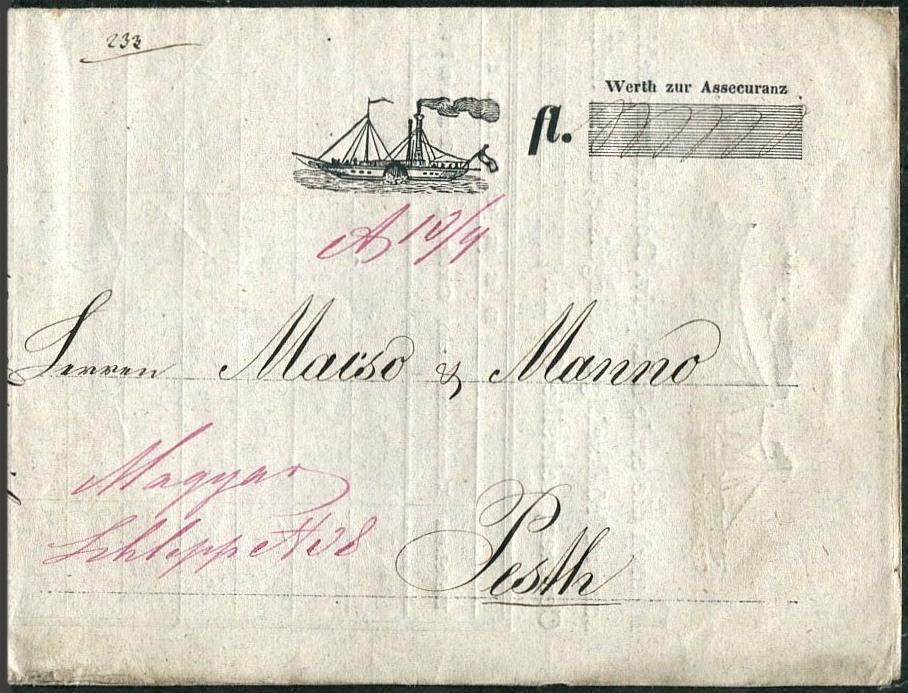 233
Werth zur Assecuranz
fl.
A 13/4
Herren Maiso & Manno
Magyar
Schlepp N 38
Pesth